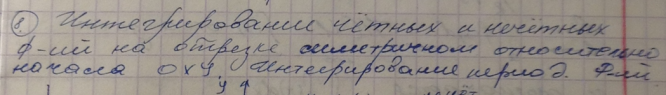 8. Интегрирование чётных и нечётных
ф-ий на отрезке симетричном относительно
начала OXY. Интегрирование период. Ф-ий.
y